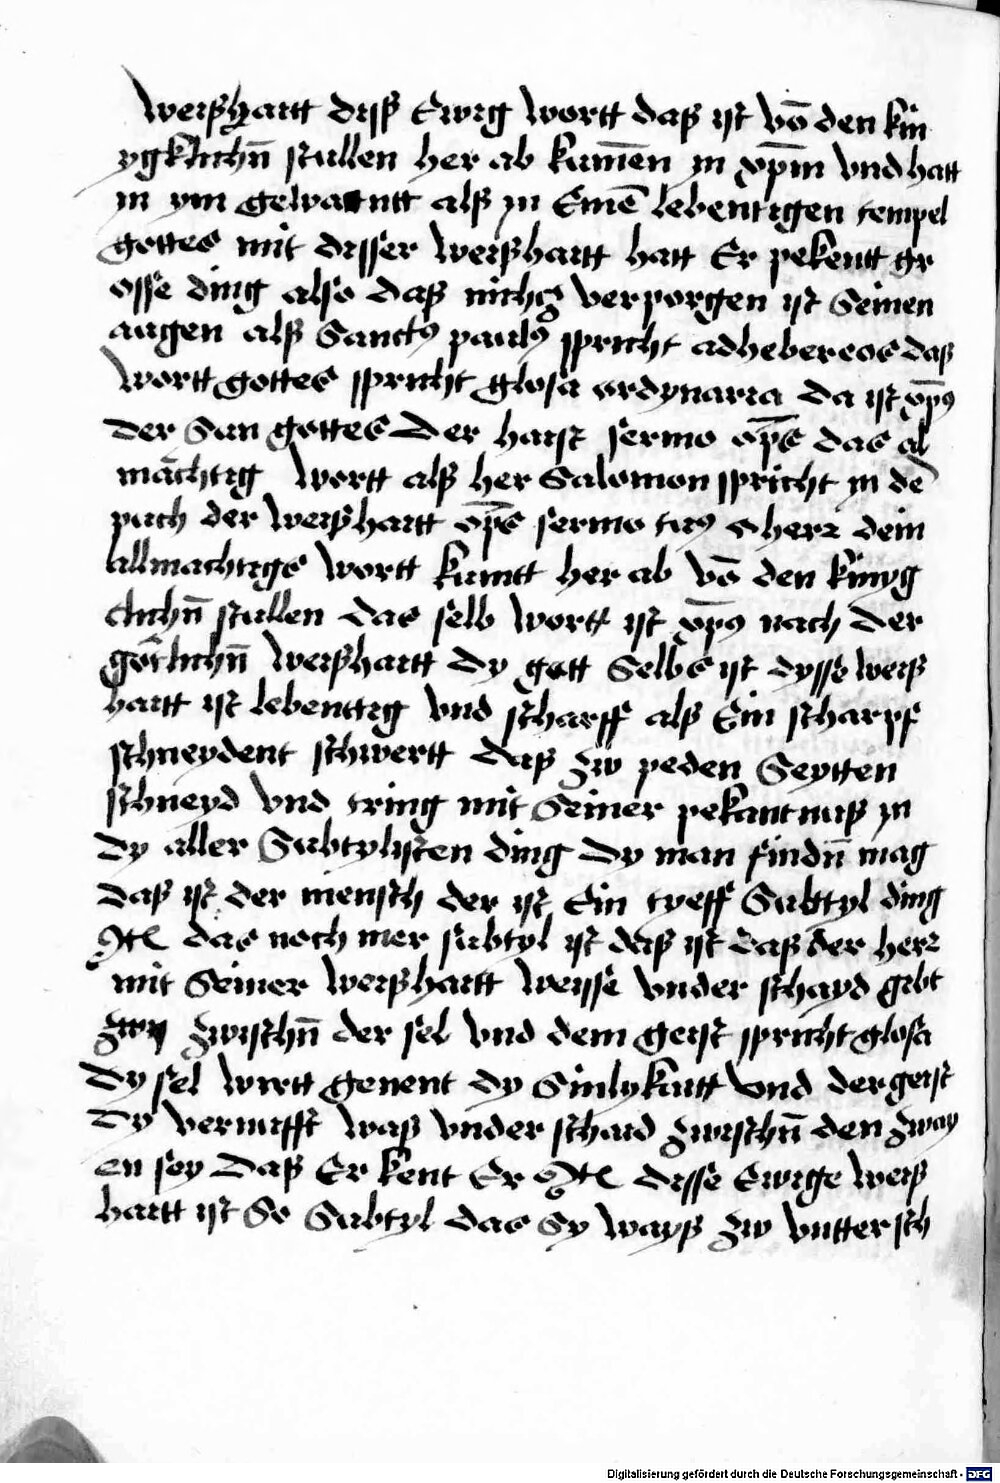 weißhartt diß Ewig wortt daß ist võ den kin
ygklichñ stullen her ab kumẽn in xp̄m vnd hatt
in ym gewantt alß in Einẽ lebentigen tempel
gottes mit disser weißhartt hatt Er pekentt gr
osse ding also daß nichcz verporgen ist Seinen
augen alß Sanctꝰ paulꝰ spricht adhebereos daß
wortt gottes spricht glosa ordynaria da ist xp̄ꝰ
der Sun gottes Der haist sermo op̄s das al
mächtig wortt alß her Salomon spricht in dē
puch der weißhartt op̄s sermo tuꝰ o herr dein
allmachtigs wortt kumtt her ab võ den kinyg
clichñ stullen das selb wortt ist xp̄ꝰ nach der
gotlichñ weißhartt dy gott Selbs ist dysse weiß
hartt ist lebenttig vnd scharff alß Ein scharpf
schneydent schwertt daß zw peden Seytten
schneyd vnd tring mit Seiner pekantnuß in
dy aller Subtylisten ding dy man findñ mag
daß ist der mensch der ist Ein tyeff Subttyl ding
Itē das noch mer subtyl ist daß ist daß der herr
mit Seiner weißhartt weysse vnder schayd gibt
zwischñ der sel vnd dem geist spricht glosa
dy sel wirtt genent dy Sinlykaitt vnd der geist
dy vernufft waß vnder schaid zwischñ den zway
en sey daß Er kent Er Itē disse Ewige weiß
hartt ist So Subtyl das Sy wayß zw vntter sch
Digitalisierung gefördert durch die Deutsche Forschungsgemeinschaft - DFG